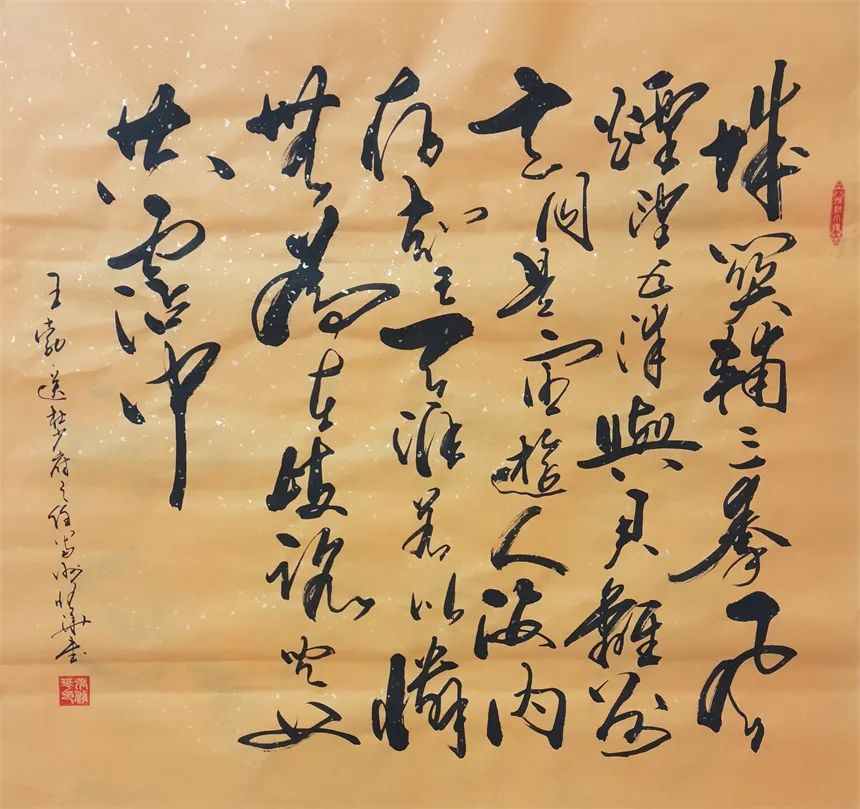 城闕輔三秦風
煙望五津與君離別
意同是宦遊人海內
存知己天涯若比隣
無為在歧路兒女
共霑巾
王勃送杜少府之任蜀州華書